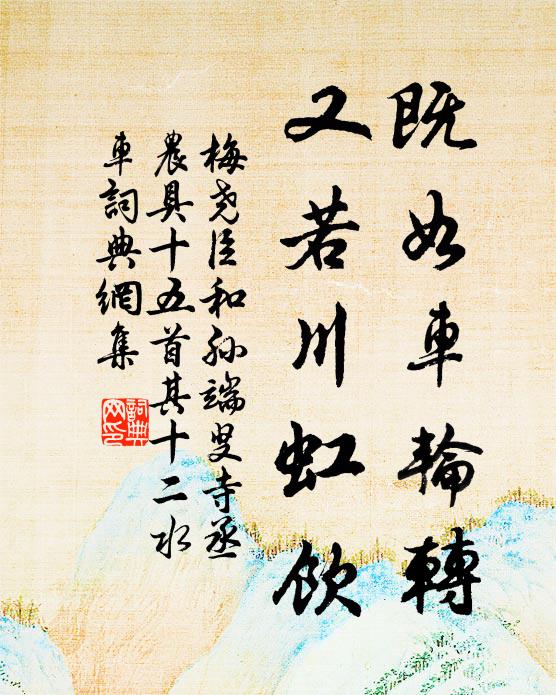 既如車輪轉
又若川虹飲
梅尧臣和孙端叟寺丞
農具十五首其十二水
車詞典網集
詞典
网印